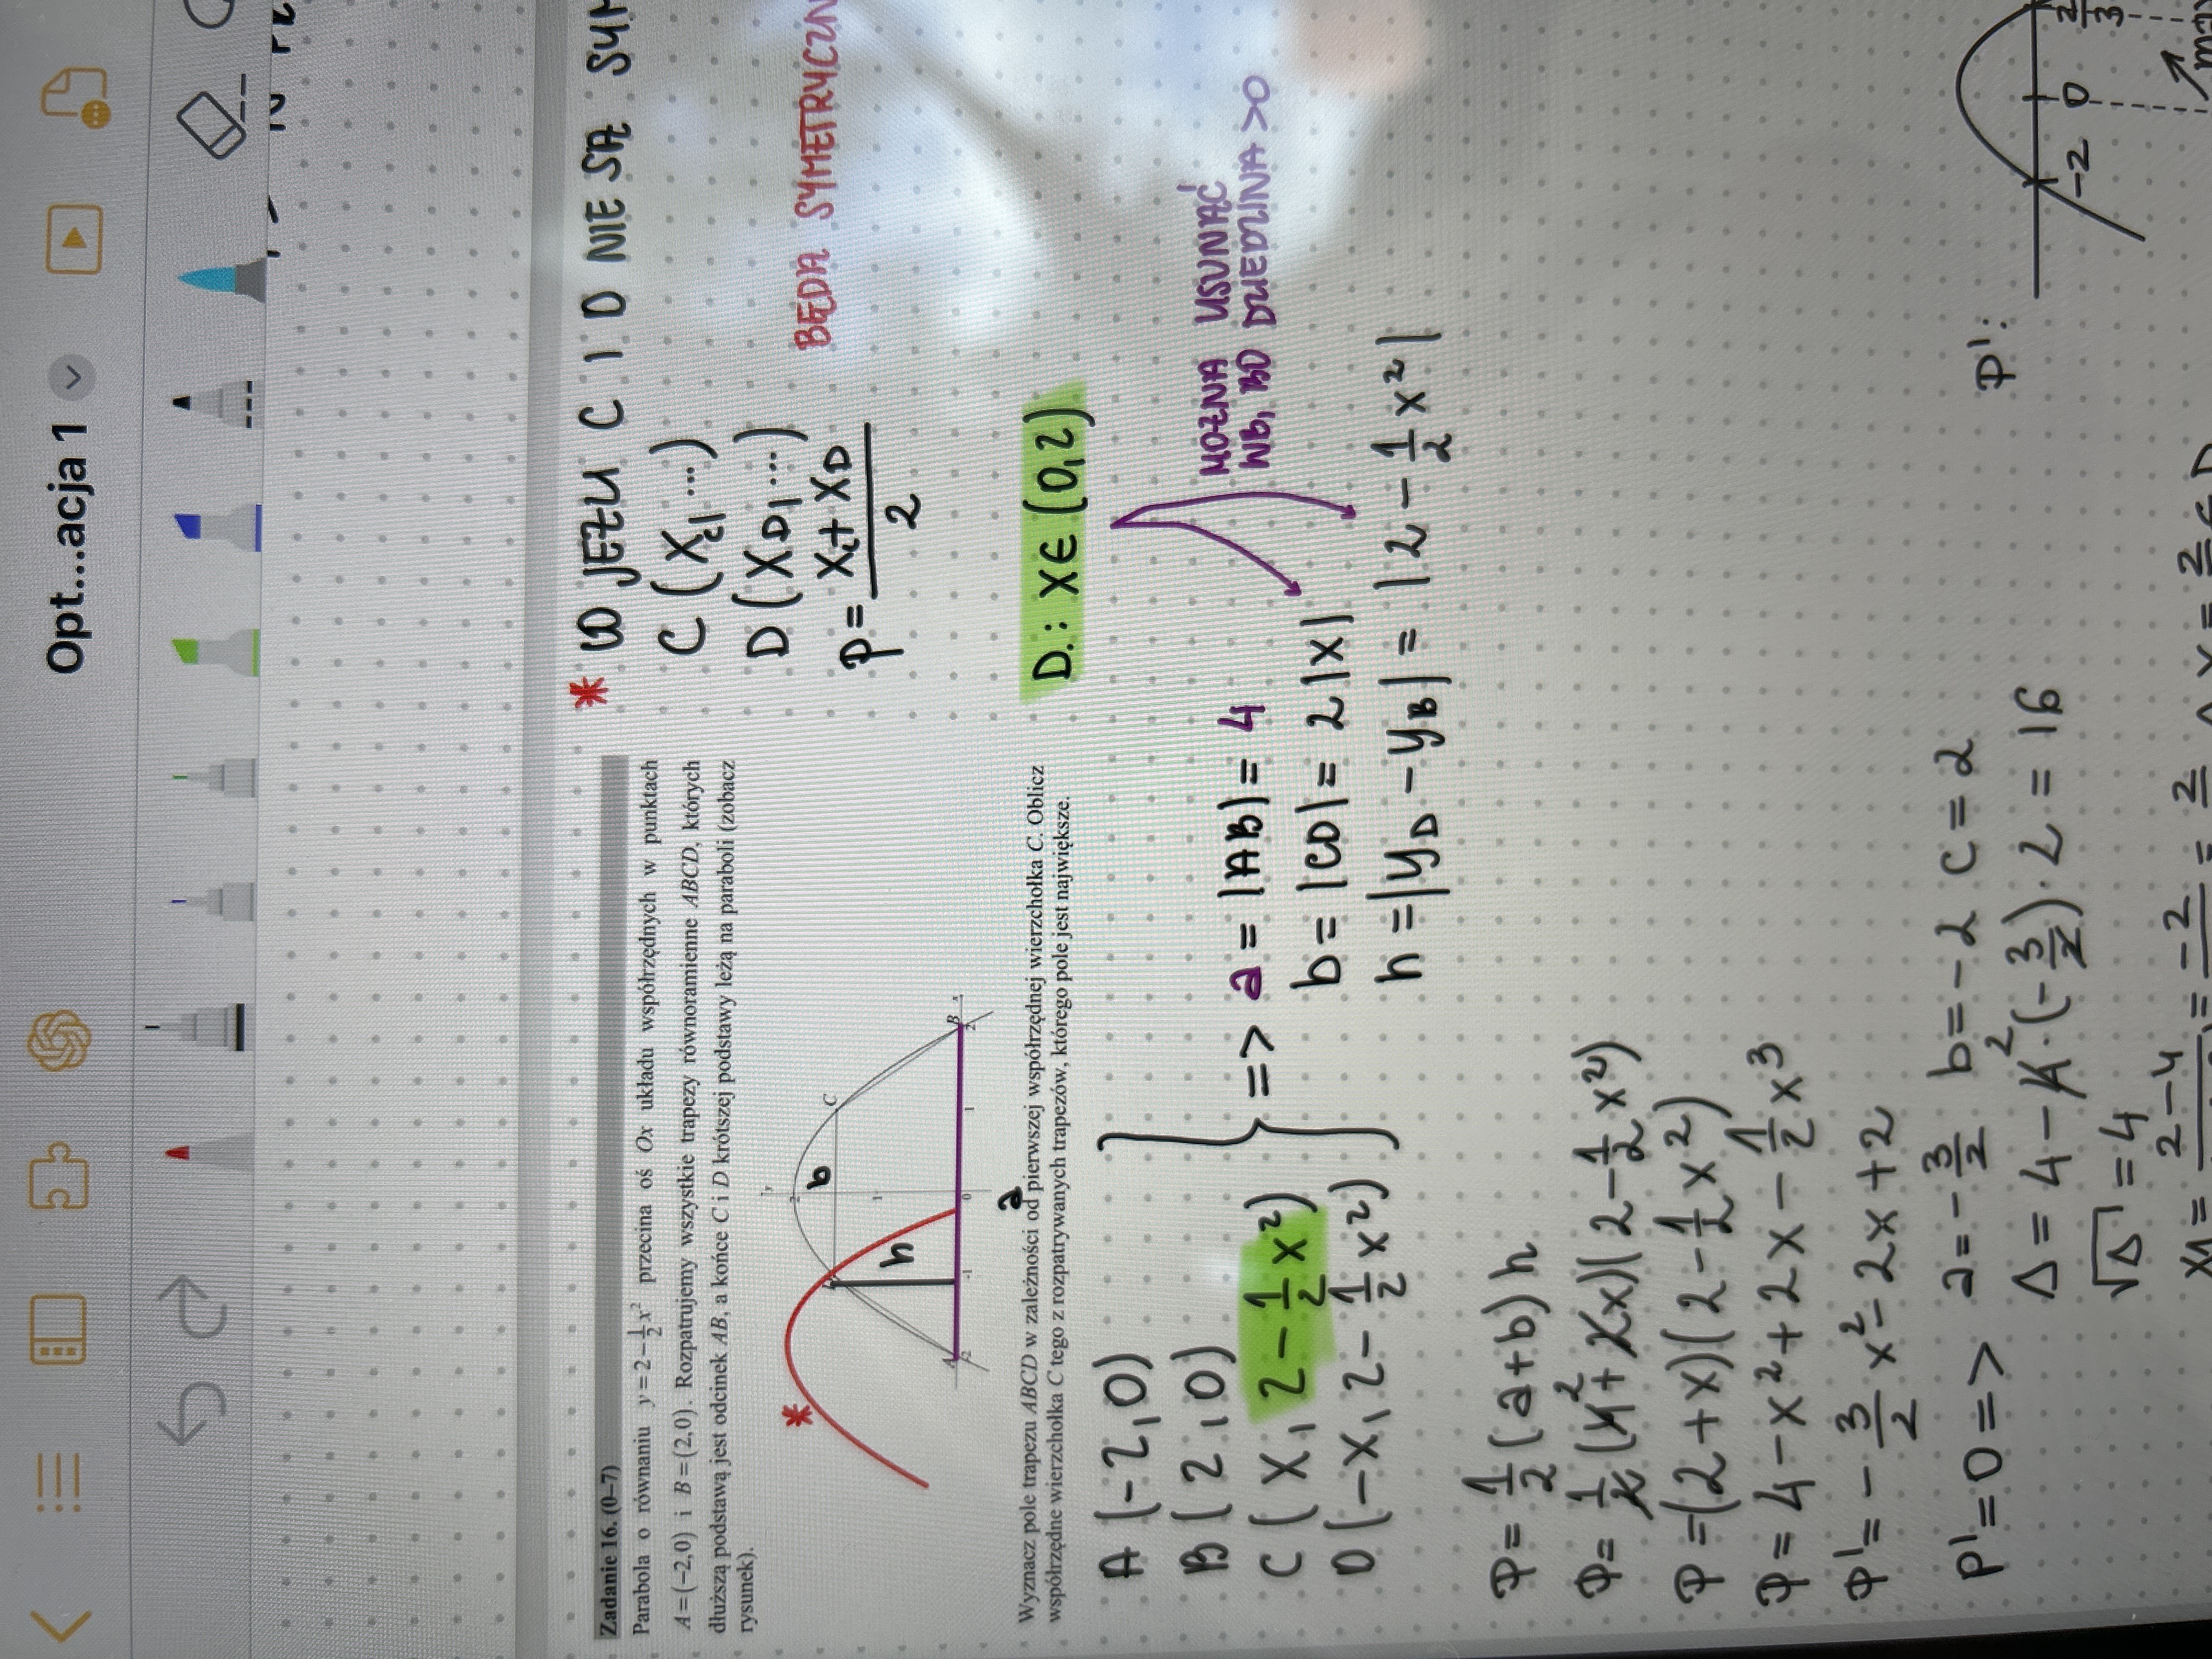 Opt...acja 1
Zadanie 16. (0–7)
Parabola o równaniu y = 2 − 1/2 x² przecina oś Ox układu współrzędnych w punktach
A = (−2, 0) i B = (2, 0). Rozpatrujemy wszystkie trapezy równoramienne ABCD, których
dłuższą podstawą jest odcinek AB, a końce C i D krótszej podstawy leżą na paraboli (zobacz
rysunek).
* JEŻELI C I D NIE SĄ
C (Xc, ...)
D (XD, ...)
p = Xc + XD / 2
BĘDĄ
*
y
2
b
C
1
h
A
-2
-1
0
1
B
2
x
a
Wyznacz pole trapezu ABCD w zależności od pierwszej współrzędnej wierzchołka C. Oblicz
współrzędne wierzchołka C tego z rozpatrywanych trapezów, którego pole jest największe.
D.: X ∈ (0, 2)
MOŻNA USUNĄĆ
WB, BO DZIEDZINA >0
A (-2, 0)
B (2, 0)
C (X, 2 - 1/2 X²)
D (-X, 2 - 1/2 X²)
=> a = |AB| = 4
b = |CD| = 2|X|
h = |yD - yB| = |2 - 1/2 X²|
P = 1/2 (a+b) h
P = 1/2 (4 + 2x)(2 - 1/2 x²)
P = (2 + x)(2 - 1/2 x²)
P = 4 - x² + 2x - 1/2 x³
P' = -3/2 x² - 2x + 2
P' = 0 => a = -3/2 b = -2 c = 2
Δ = 4 - 4 · (-3/2) · 2 = 16
√Δ = 4
P':
-2 0 2/3